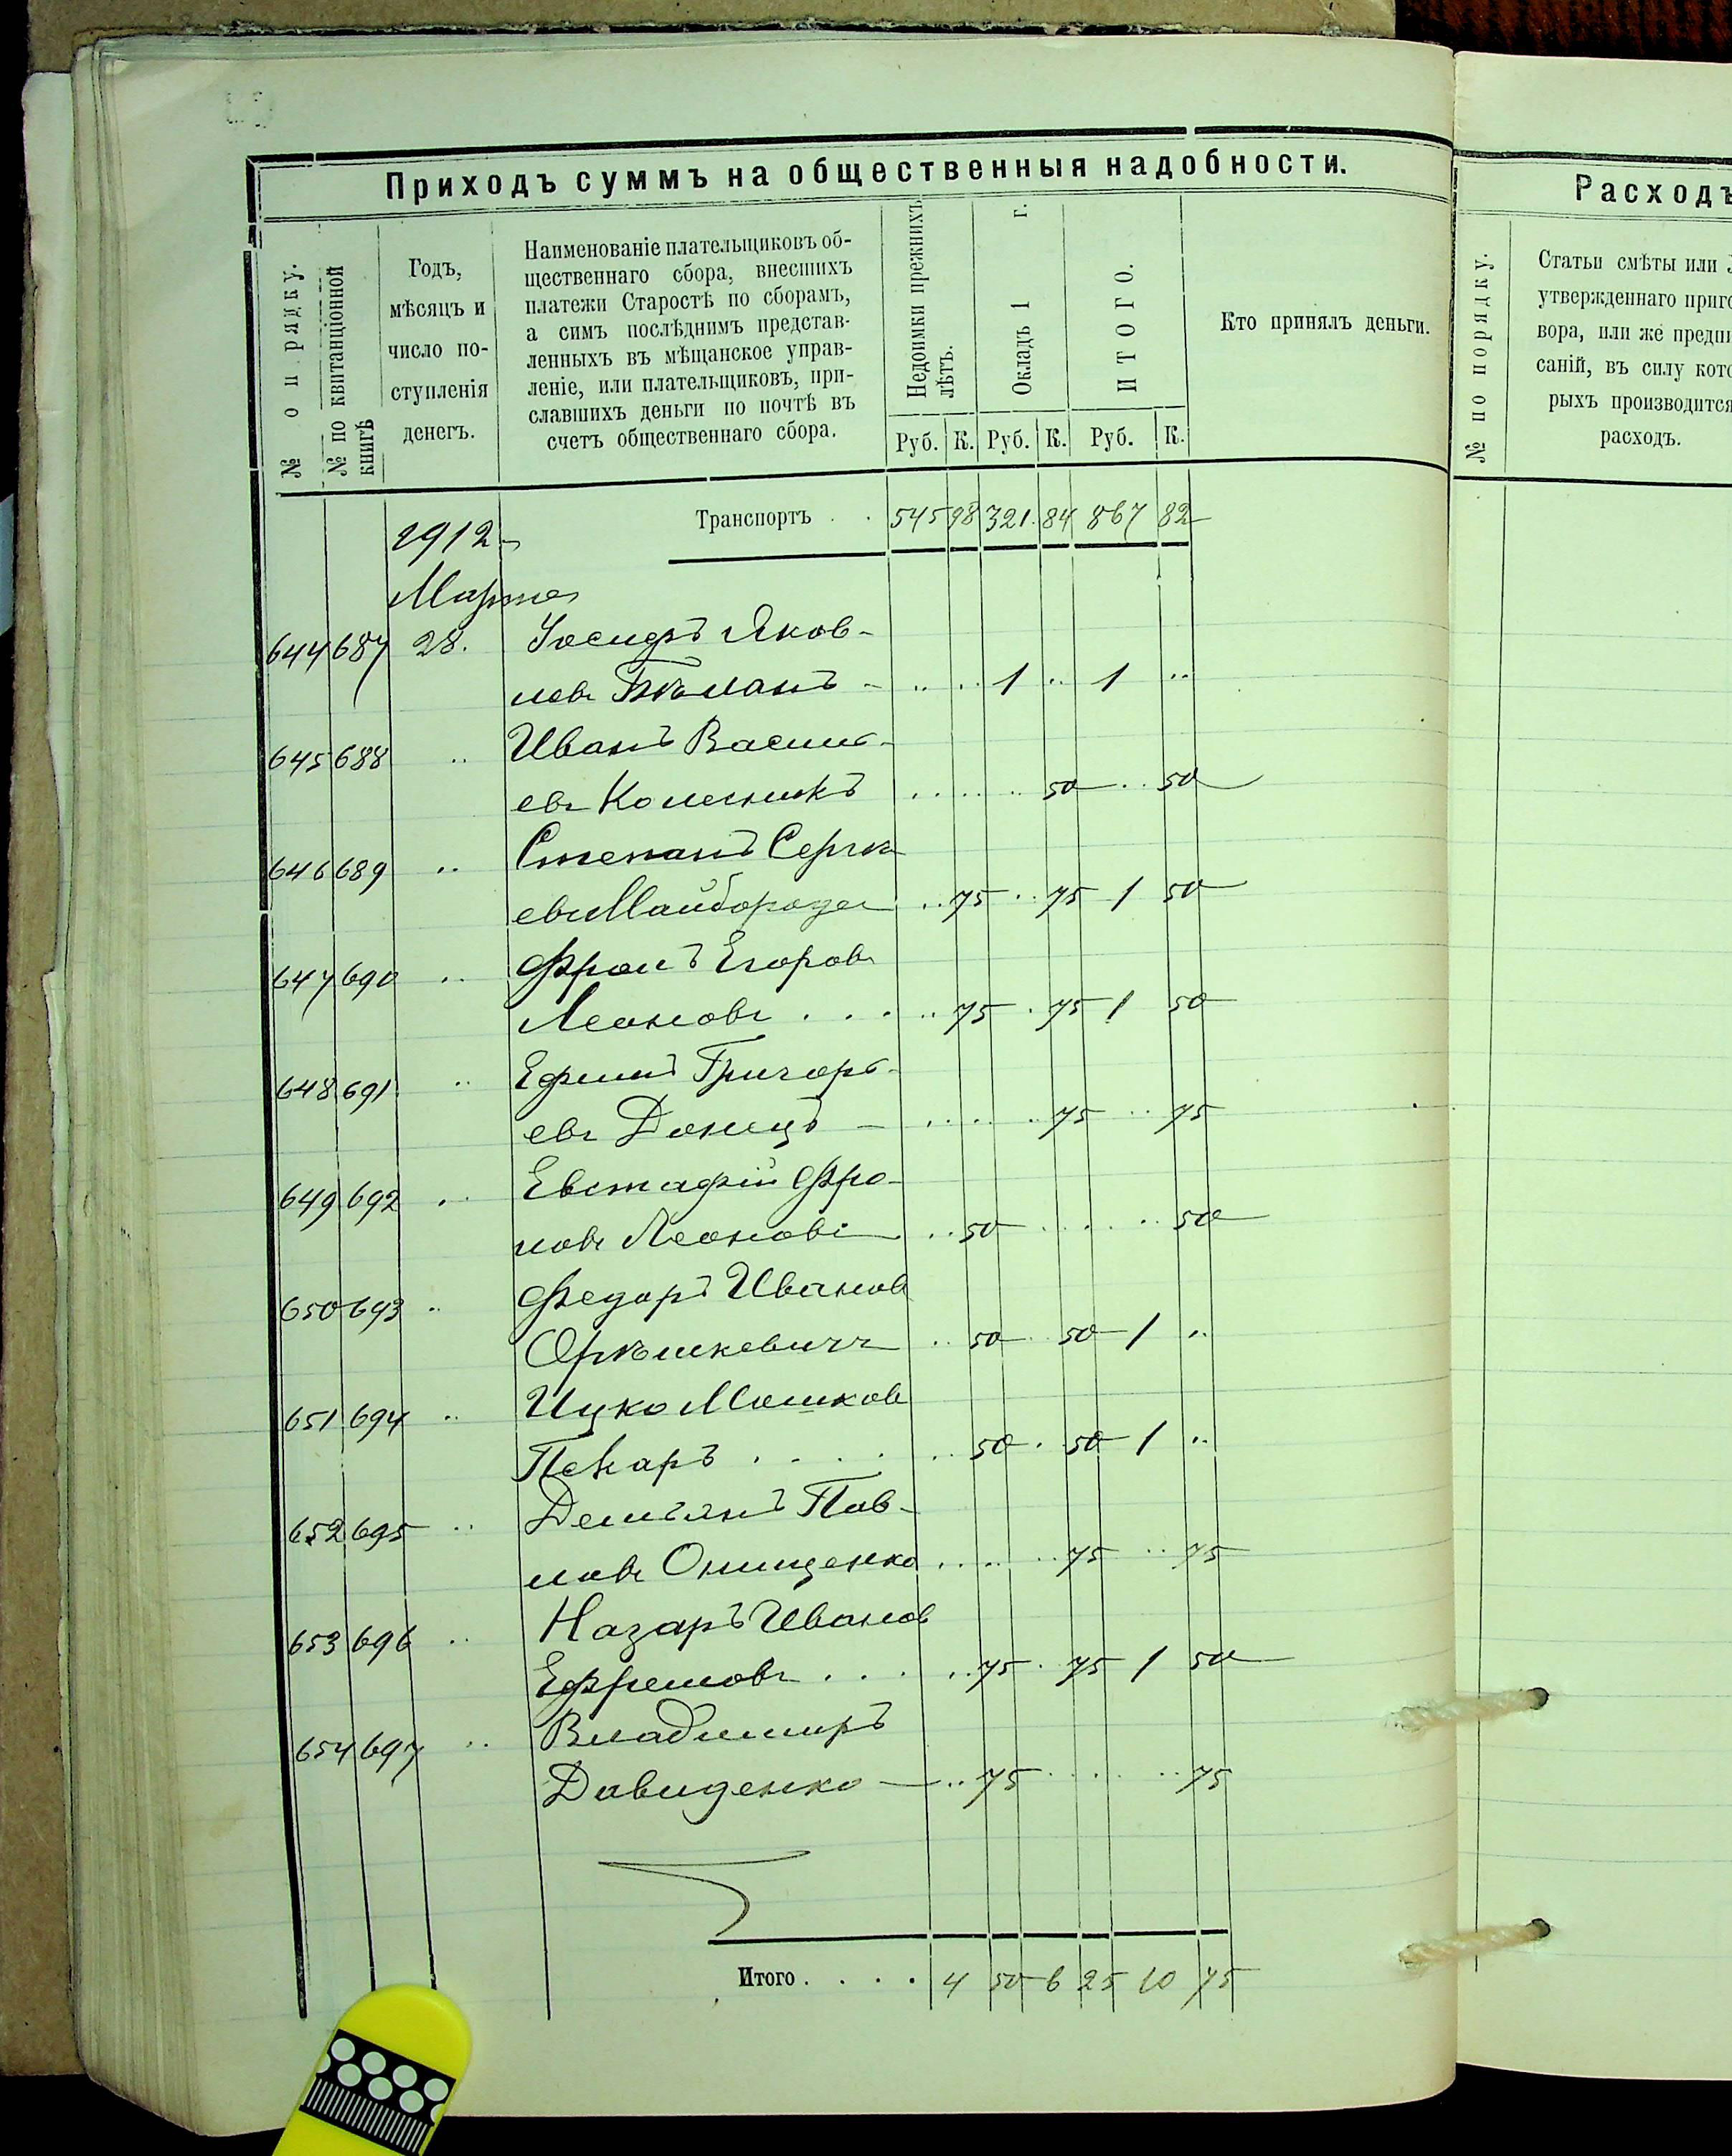 Приходъ суммъ на общественныя надобности.
№ по рядку.
№ по квитанціонной книгѣ
Годъ,
мѣсяцъ и
число по-
ступленія
денегъ.
Наименованіе плательщиковъ об-
щественнаго сбора, внесшихъ
платежи Старостѣ по сборамъ,
а симъ послѣднимъ представ-
ленныхъ въ мѣщанское управ-
леніе, или плательщиковъ, при-
славшихъ деньги по почтѣ въ
счетъ общественнаго сбора.
Недоимки прежнихъ лѣтъ.
Окладъ 1 г.
ИТОГО.
Кто принялъ деньги.
Руб. К. Руб. К. Руб. К.
Транспортъ . . 545 98 321 84 867 82
1912
Марта
644 687 28. Іосифъ Яков-
левъ – .. .. 1 .. 1 ..
645 688 .. Иванъ Василь-
евъ Колесникъ .. .. .. 50 .. 50
646 689 .. Степанъ Сергѣ
евъ Майборода .. 75 .. 75 1 50
647 690 .. Фролъ Егоровъ
Леоновъ . . . .. 75 . 75 1 50
648 691 .. Ефимъ Григорь-
евъ Донецъ – .. .. .. 75 .. 75
649 692 .. Евстафій Фро-
ловъ Леоновъ .. 50 .. .. .. 50
650 693 .. Федоръ Ивановъ
Орѣшкевичъ .. 50 .. 50 1 ..
651 694 .. Ицко Мошковъ
Пекаръ . . . . .. 50 . 50 1 ..
652 695 .. Демьянъ Пав-
ловъ Онищенко .. .. .. 75 .. 75
653 696 .. Назаръ Ивановъ
Ефремовъ . . . .. 75 . 75 1 50
654 697 .. Владимиръ
Давиденко – .. 75 .. .. .. 75
Итого . . . . 4 50 6 25 10 75
Расходъ
№ по порядку.
Статьи смѣты или
утвержденнаго приго
вора, или же предпи
саній, въ силу кото
рыхъ производится
расходъ.